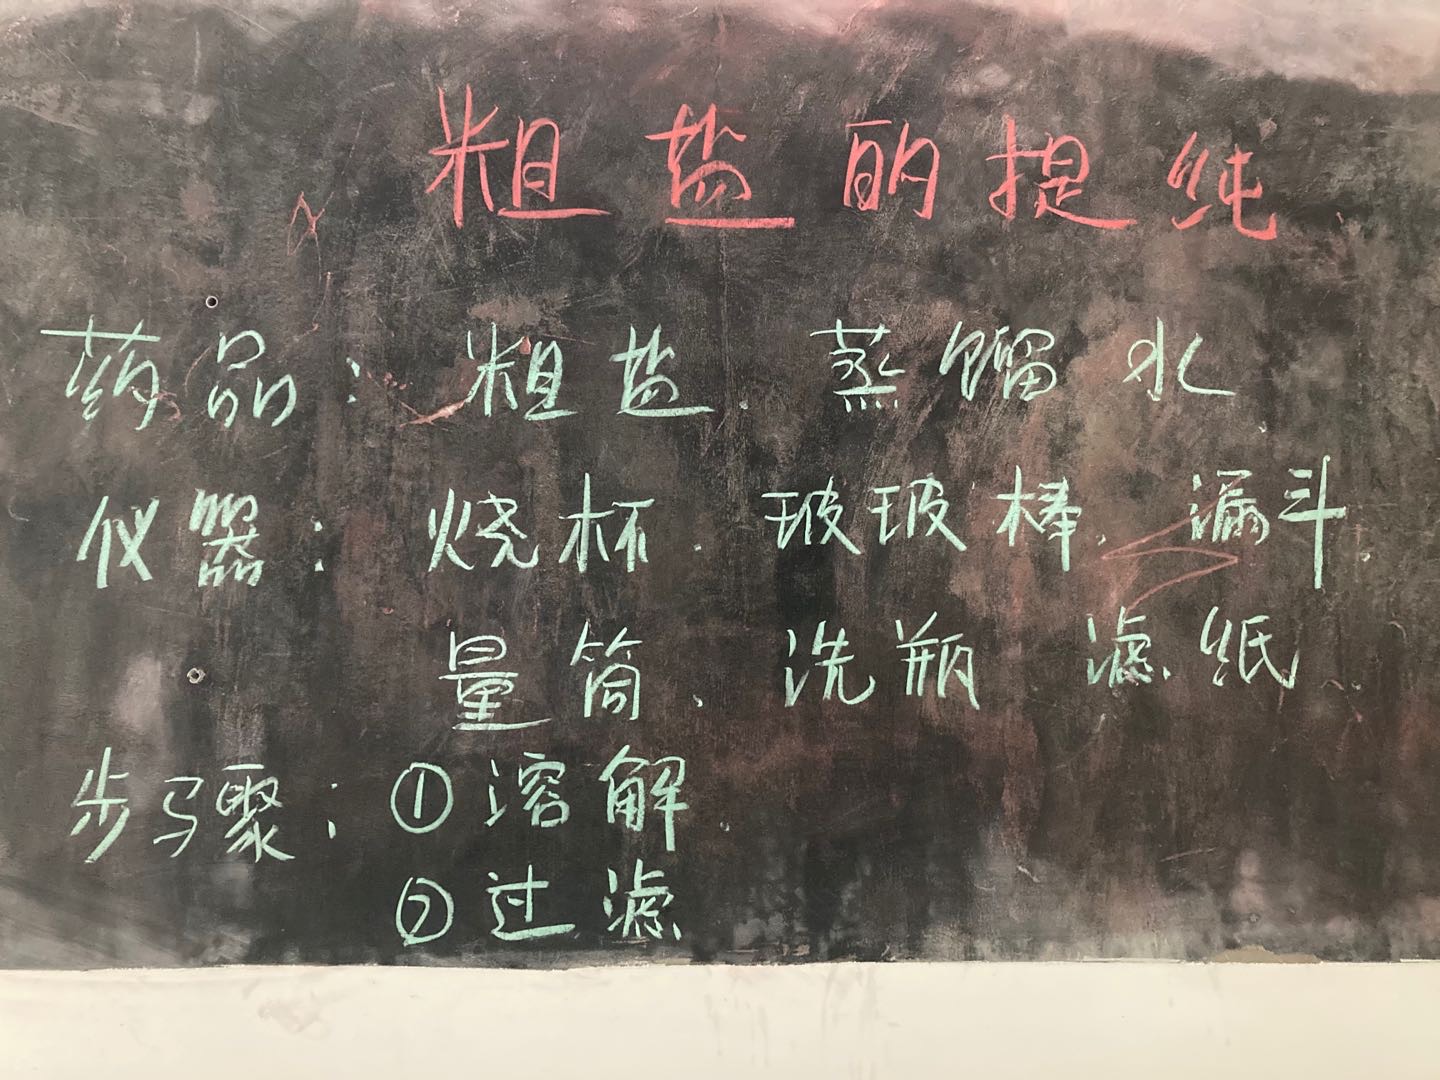 粗盐的提纯
药品：粗盐、蒸馏水
仪器：烧杯、玻玻棒、漏斗、
量筒、洗瓶 滤纸
步骤：①溶解、
②过滤